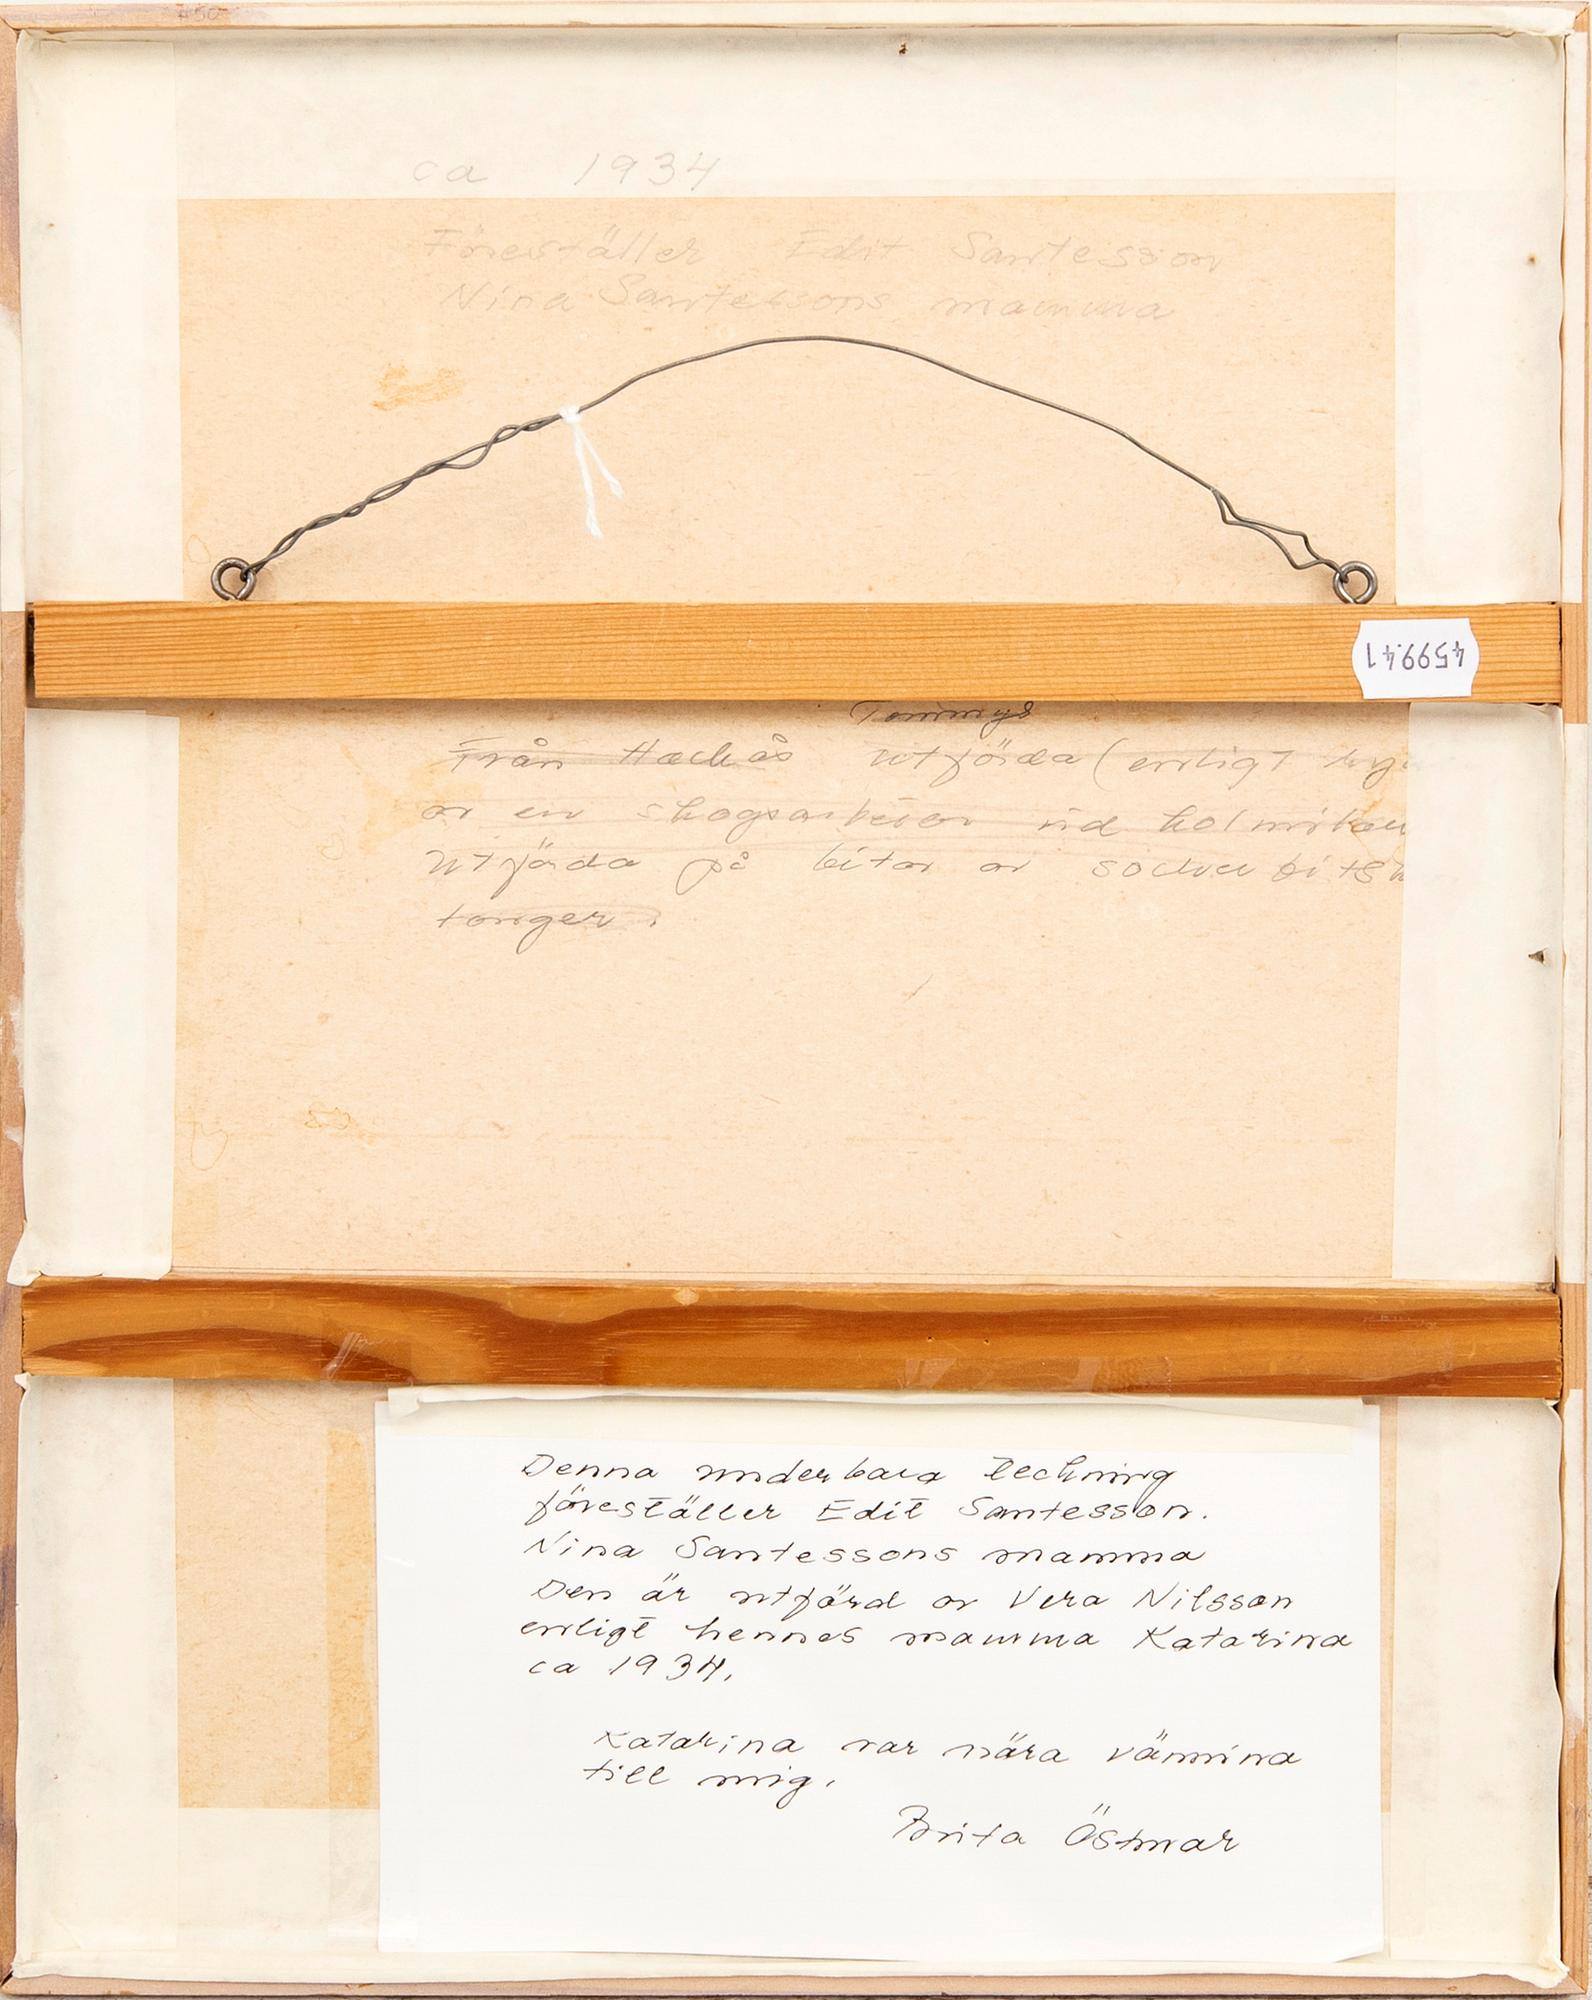 ca 1934
Föreställer Edit Santesson
Nina Santessons mamma
459941
Tommys
Från Hackås utförda (enligt
av en skogsarbetare vid kolmilan
utförda på bitar av sockerbits
tonger.
Denna underbara teckning
föreställer Edit Santesson.
Nina Santessons mamma
Den är utförd av Vera Nilsson
enligt hennes mamma Katarina
ca 1934.
Katarina var nära väninna
till mig.
Brita Östmar